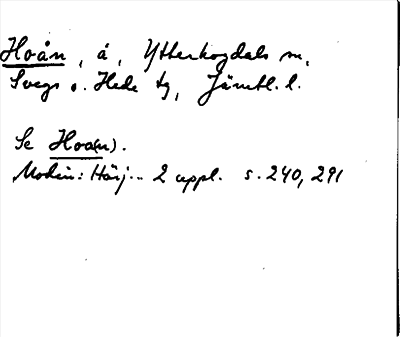 Hoån, å, Ytterhogdals sn,
Svegs o. Hede tg, Jämtl. l.
Se Hoa(n).
Modin: Härj... 2 uppl. s. 240, 291